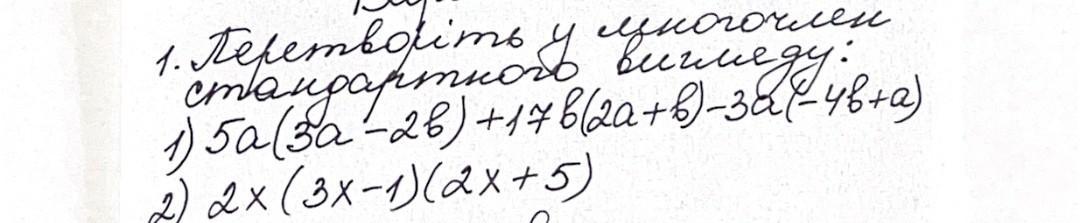 1. Перетворіть у многочлен
стандартного вигляду:
1) 5a(3a-2b)+17b(2a+b)-3a(-4b+a)
2) 2x(3x-1)(2x+5)